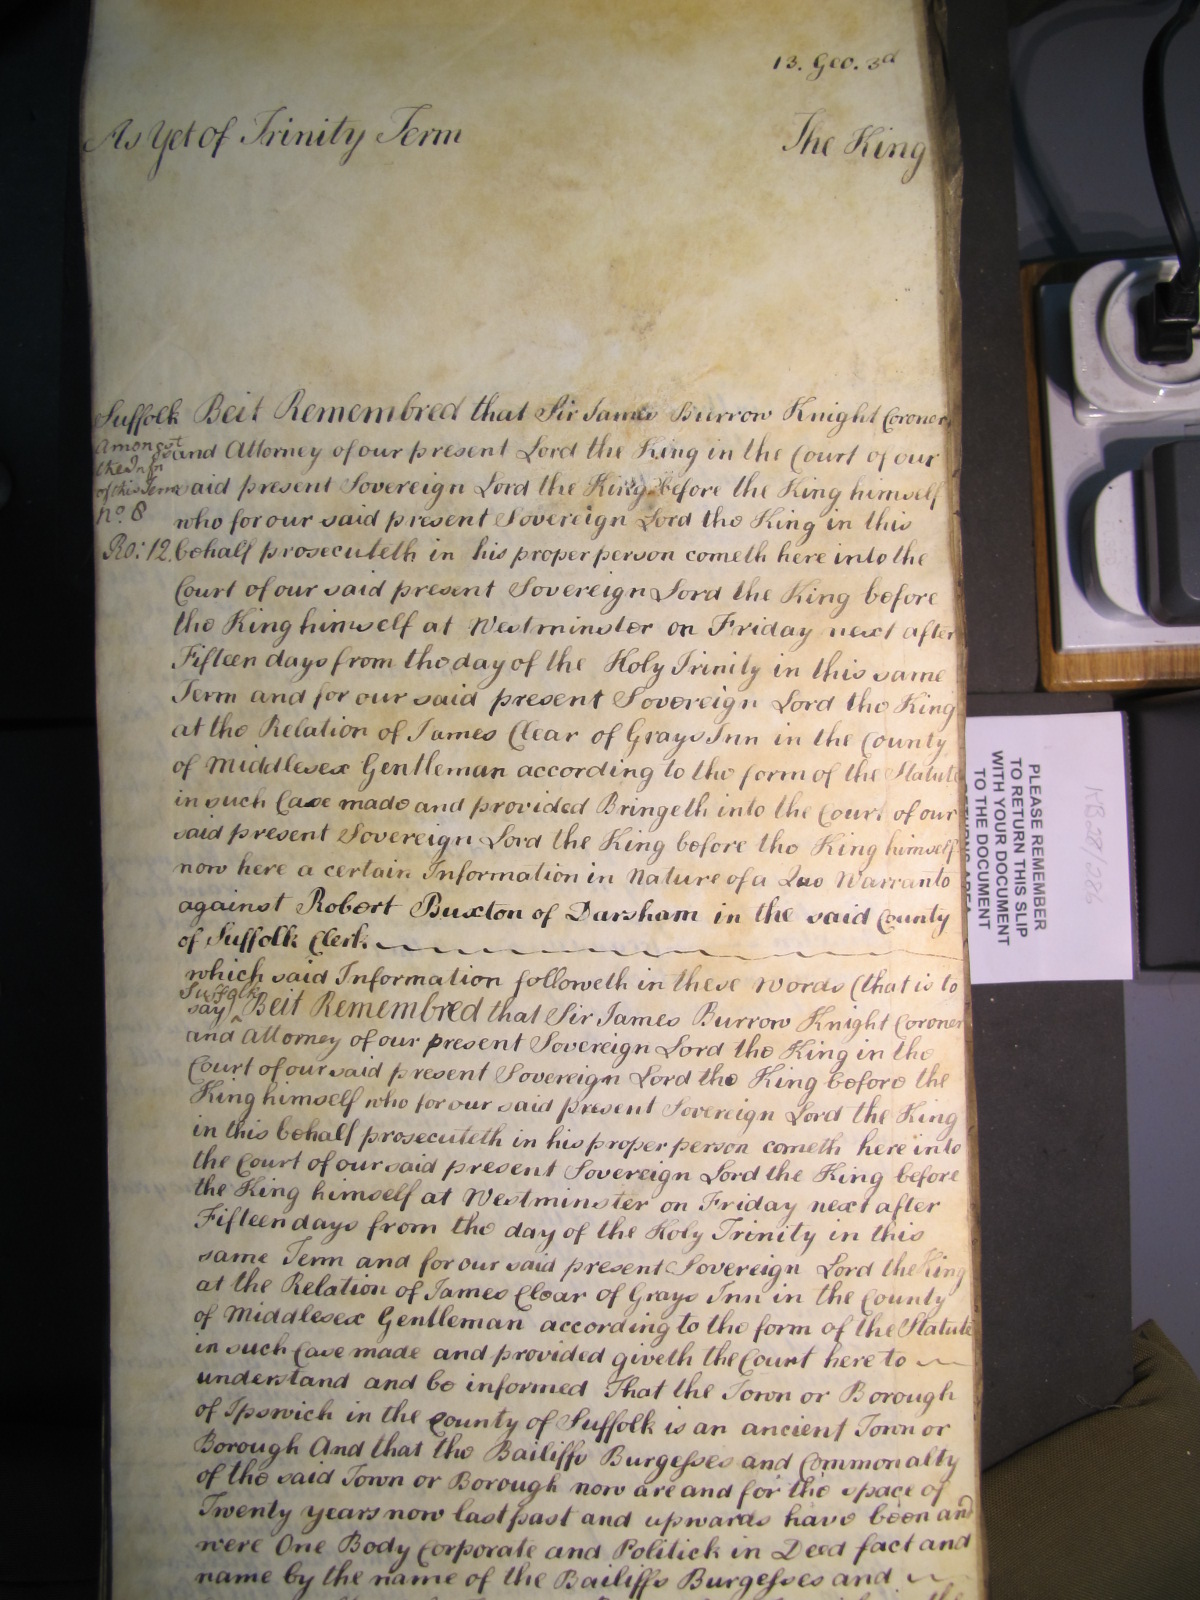 13. Geo. 3d
As Yet of Trinity Term The King
Suffolk Beit Remembred that Sir James Burrow Knight Coroner
Amongst
the Inf.
of this Term
No. 8
Ro: 12.
and Attorney of our present Lord the King in the Court of our
said present Sovereign Lord the King before the King himself
who for our said present Sovereign Lord the King in this
behalf prosecuteth in his proper person cometh here into the
Court of our said present Sovereign Lord the King before
the King himself at Westminster on Friday next after
Fifteen days from the day of the Holy Trinity in this same
Term and for our said present Sovereign Lord the King
at the Relation of James Clear of Grays Inn in the County
of Middlesex Gentleman according to the form of the Statute
in such Case made and provided Bringeth into the Court of our
said present Sovereign Lord the King before the King himself
now here a certain Information in Nature of a Quo Warranto
against Robert Buxton of Darsham in the said County
of Suffolk Clerk
which said Information followeth in these Words (that is to
Suffolk
say) ^ Beit Remembred that Sir James Burrow Knight Coroner
and Attorney of our present Sovereign Lord the King in the
Court of our said present Sovereign Lord the King before the
King himself who for our said present Sovereign Lord the King
in this behalf prosecuteth in his proper person cometh here into
the Court of our said present Sovereign Lord the King before
the King himself at Westminster on Friday next after
Fifteen days from the day of the Holy Trinity in this
same Term and for our said present Sovereign Lord the King
at the Relation of James Clear of Grays Inn in the County
of Middlesex Gentleman according to the form of the Statute
in such Case made and provided giveth the Court here to
understand and be informed That the Town or Borough
of Ipswich in the County of Suffolk is an ancient Town or
Borough And that the Bailiffs Burgesses and Commonalty
of the said Town or Borough now are and for the space of
Twenty years now last past and upwards have been and
were One Body Corporate and Politick in Deed fact and
name by the name of the Bailiffs Burgesses and
PLEASE REMEMBER
TO RETURN THIS SLIP
WITH YOUR DOCUMENT
TO THE DOCUMENT
KB 28/286